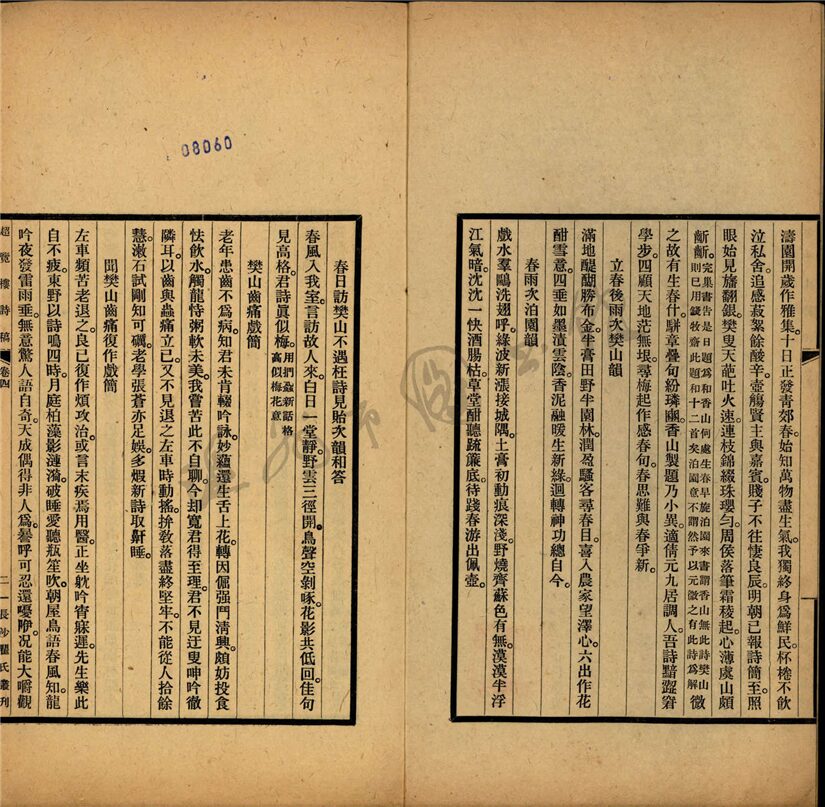 濤園開歲作雅集十日正發靑郊春始知萬物盡生氣我獨終身爲鮮民杯棬不飮
泣私舍追感菽絮餘酸辛壺觴賢主與嘉賓賤子不往悽良辰明朝已報詩簡至照
眼始見旛翻銀樊叟天葩吐火速連枝錦綴珠瓔勻周侯落筆霜稜起心薄虞山頗
斷斷完巢書告是日題爲和香山何處生春早旋泊園來書謂香山無此詩樊山
則已用錢牧齋此題和十二首矣泊園意不謂然予以元微之有此詩爲解微
之故有生春什騈章疊句紛璘豳香山製題乃小異適倩元九居調人吾詩黯澀窘
學步四顧天地茫無垠尋梅起作感春句春思難與春爭新
立春後雨次樊山韻
滿地醍醐勝布金半膏田野半園林潤盈騷客尋春日喜入農家望澤心六出作花
酣雪意四垂如墨漬雲陰香泥融暖生新綠迴轉神功總自今
春雨次泊園韻
戲水羣鷗洗翅呼綠波新漲接城隅土膏初動痕深淺野燒齊蘇色有無漠漠半浮
江氣暗沈沈一快酒腸枯草堂酣聽疏簾底待踐春游出佩壺
08060
春日訪樊山不遇枉詩見貽次韻和答
春風入我室言訪故人來白日一堂靜野雲三徑開鳥聲空剝啄花影共低回佳句
見高格君詩眞似梅用捫蝨新話格高似梅花意
樊山齒痛戲簡
老年患齒不爲病知君未肯輟吟詠妙蘊還生舌上花轉因倔强鬥淸興頗妨投食
怯飮水觸龍恃粥軟未美我嘗苦此不自聊今却寬君得至理君不見迂叟呻吟徹
隣耳以齒與蟲痛立已又不見退之左車時動搖捹敎落盡終堅牢不能從人拾餘
慧漱石試剛知可礪老學張蒼亦足娛多煆新詩取鼾睡
聞樊山齒痛復作戲簡
左車頻苦老退之良已復作煩攻治或言末疾焉用醫正坐躭吟眚寐遲先生樂此
自不疲東野以詩鳴四時月庭柏藻影漣漪破睡愛聽瓶笙吹朝屋鳥語春風知龍
吟夜發雷雨垂無意驚人語自奇天成偶得非人爲釁呼可忍還嚘咿况能大嚼觀
超覽樓詩稿
卷四
二
長沙瞿氏叢刊